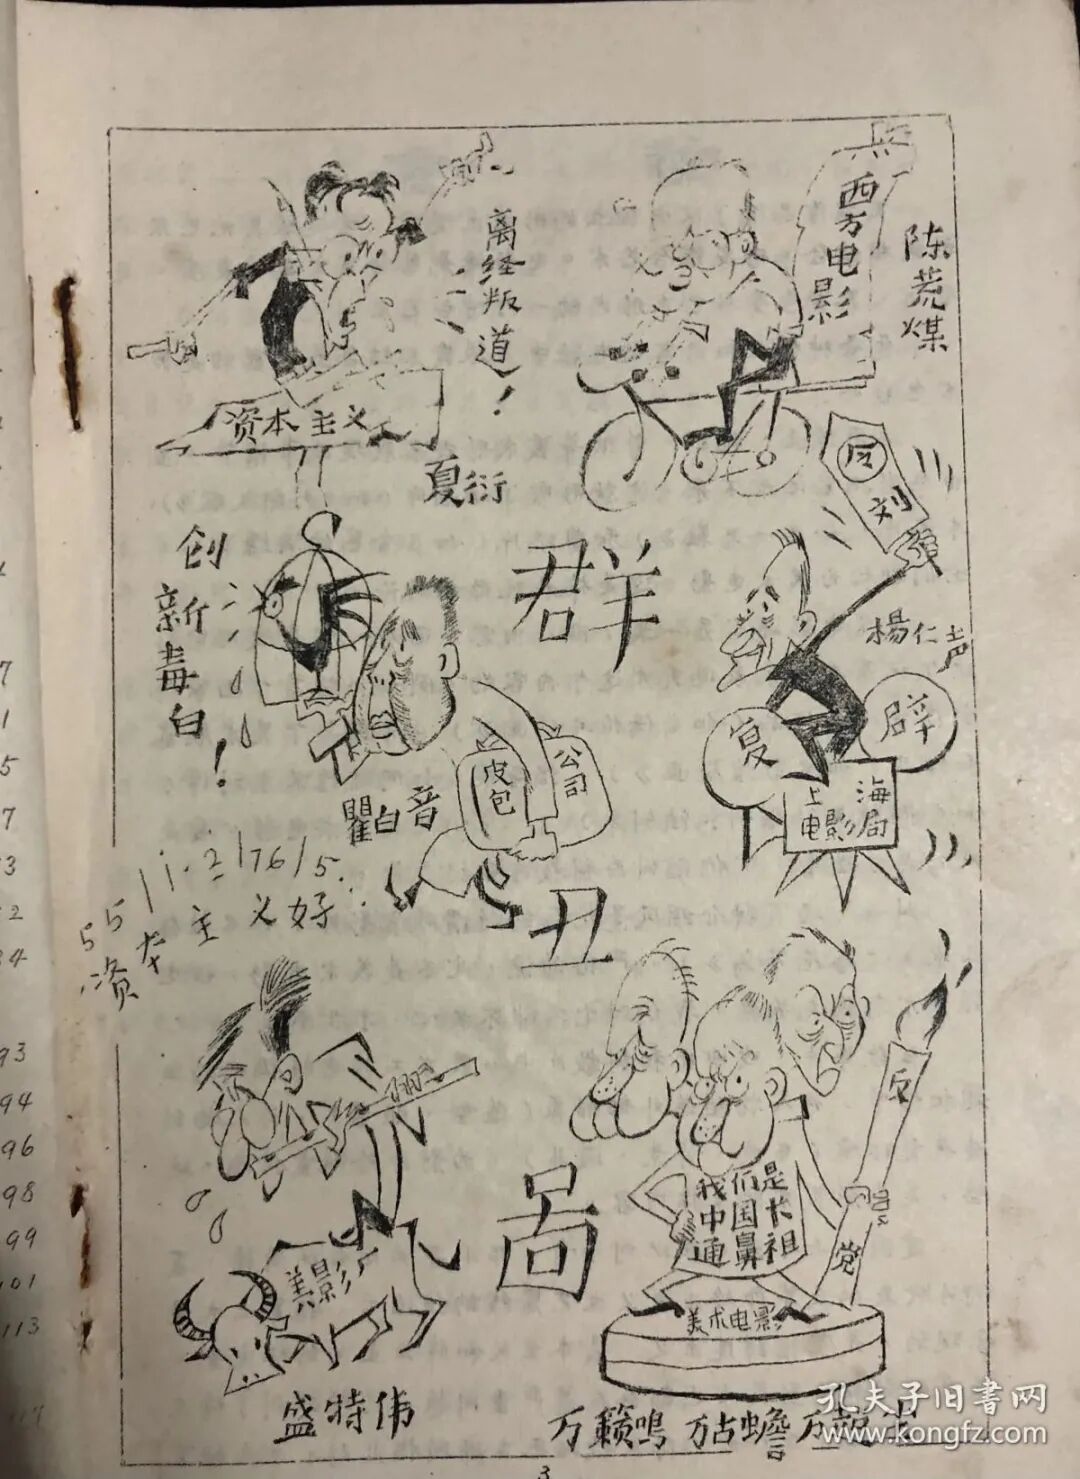 离经叛道！
资本主义
夏衍
西方电影
陈荒煤
创新毒白！
瞿白音
皮包
公司
反
刘
楊仁声
复
辟
上海
电影局
群
丑
啚
资本主义好
美影厂
盛特伟
我们是
中国长
通鼻祖
反
党
美术电影
万籁鸣 万古蟾
3
93
94
96
98
99
101
113
孔夫子旧书网
www.kongfz.com